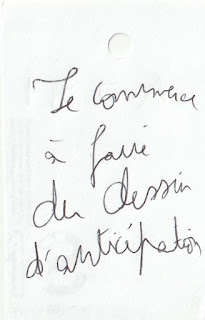 Je commence
à faire
du dessin
d'anticipation